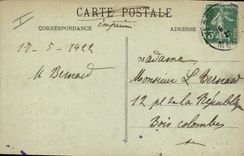 CARTE POSTALE
CORRESPONDANCE
ADRESSE
imprimé
17-5-1922
M Bernard
Madame
Monsieur L Bernard
12 pl de la République
Bois colombes